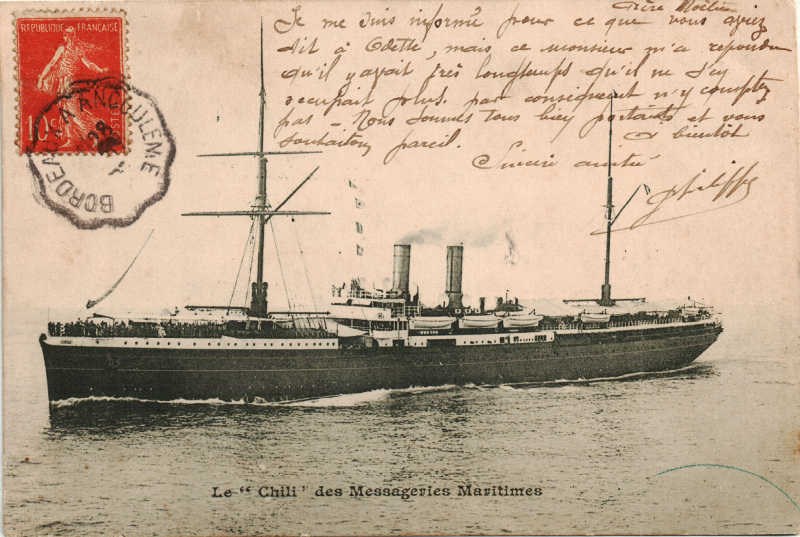 RÉPUBLIQUE FRANÇAISE
10c POSTES
BORDEAUX A ANGOULEME
28
Frère Moelie
Je me suis informé pour ce que vous aviez
dit à Odette, mais ce monsieur m'a repondu
qu'il y avait très longtemps qu'il ne s'en
occupait plus. par conséquent n'y comptez
pas - Nous sommes tous bien portants et vous
souhaitons pareil. à bientôt
Sincère amitié
Philippe
Le " Chili " des Messageries Maritimes